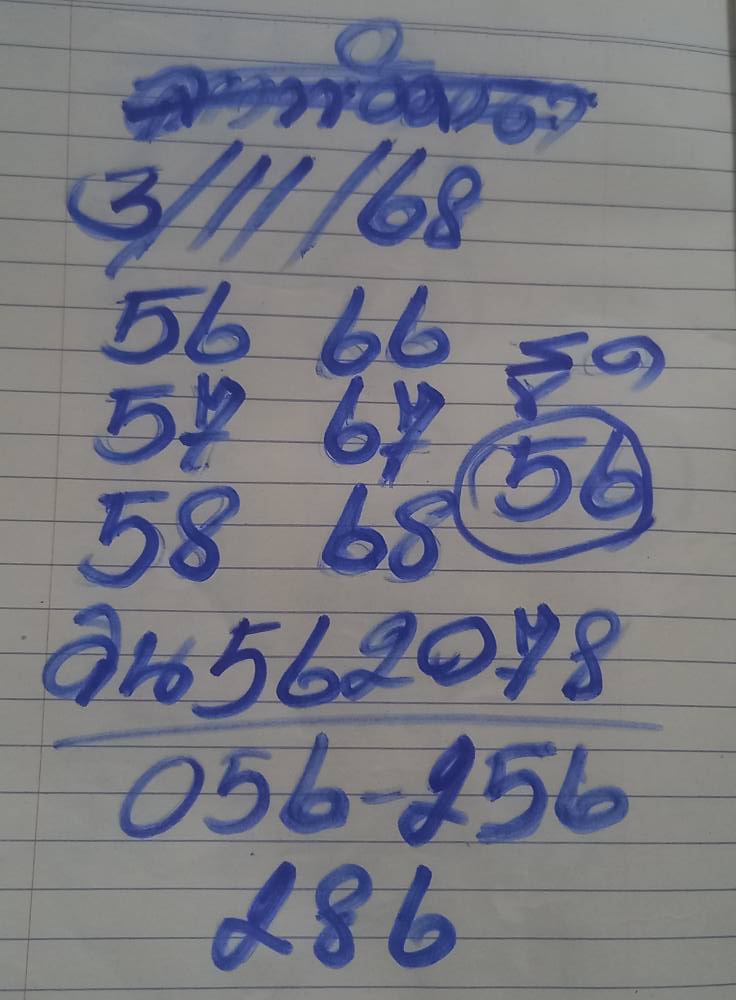 3/11/68
56 66
57 67
58 68
56
วิน562078
056-256
286